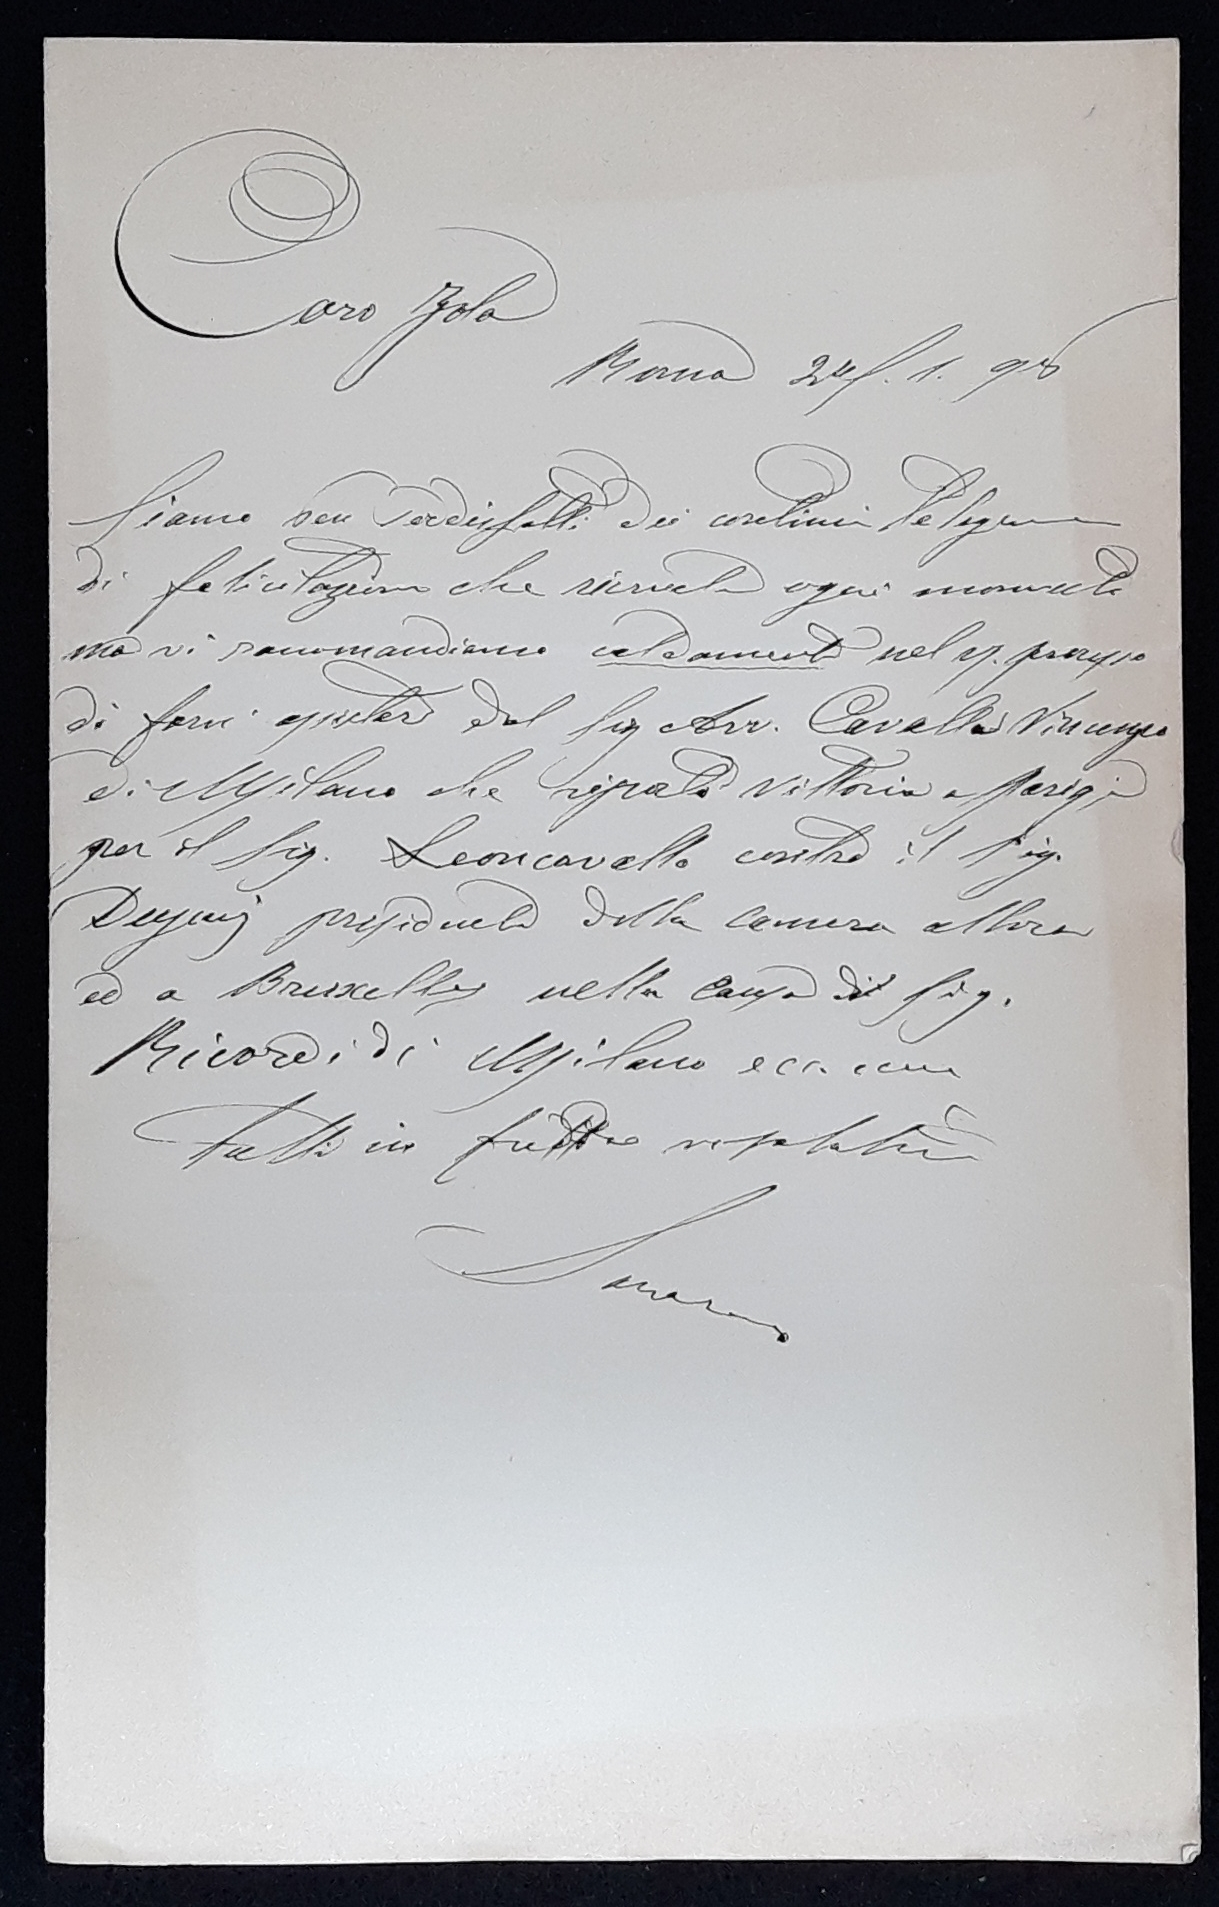 Caro Zola
Roma 24. 1. 98
Siamo ben soddisfatti dei continui telegrammi
di felicitazioni che ricevete ogni momento
ma vi raccomandiamo caldamente nel vs. processo
di farvi assistere dal Sig Avv. Cavalla Vincenzo
di Milano che riportò vittoria a Parigi
per il Sig. Leoncavallo contro il Sig.
presidente della camera allora
ed a Bruxelles nella causa di Sig.
Ricordi di Milano ecc.
Tutti in